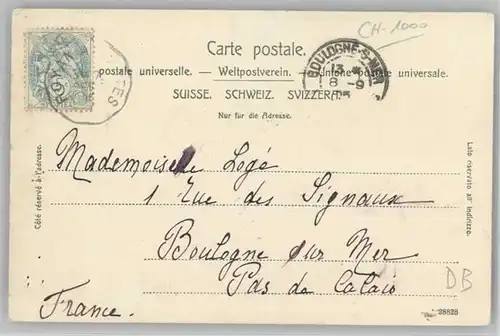 CH-1000
Carte postale.
postale universelle. — Weltpostverein. — Unione postale universale.
SUISSE. SCHWEIZ. SVIZZERA.
Nur für die Adresse.
BOULOGNE-S-MER
8-9
Côté réservé à l'adresse.
Lato riservato all' indirizzo.
Mademoiselle Logé
1 Rue des Signaux
Boulogne sur Mer
Pas de Calais
France.
DB
28828